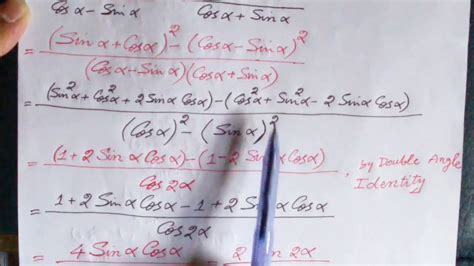 Cosα - Sinα    Cosα + Sinα
= (Sinα + Cosα)² - (Cosα - Sinα)²
(Cosα - Sinα)(Cosα + Sinα)
= (Sin²α + Cos²α + 2 Sinα Cosα) - (Cos²α + Sin²α - 2 Sinα Cosα)
(Cosα)² - (Sinα)²
= (1 + 2 Sinα Cosα) - (1 - 2 Sinα Cosα)
Cos2α
by Double Angle
Identity
= 1 + 2 Sinα Cosα - 1 + 2 Sinα Cosα
Cos2α
= 4 Sinα Cosα = 2